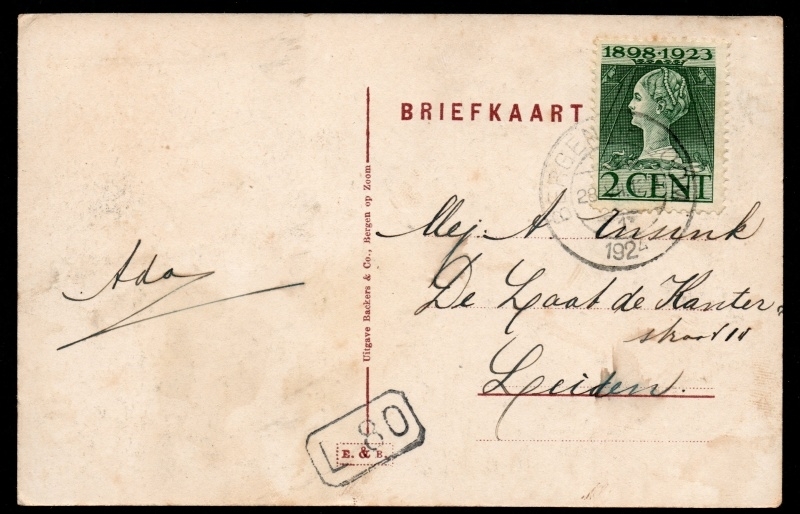 BRIEFKAART
1898·1923
2 CENT
BERGEN
28
1924
Uitgave Backers & Co., Bergen op Zoom
Ada
Mej. A
De Laat de Kanter-
straat 11
Leiden.
L 80
E. & B.